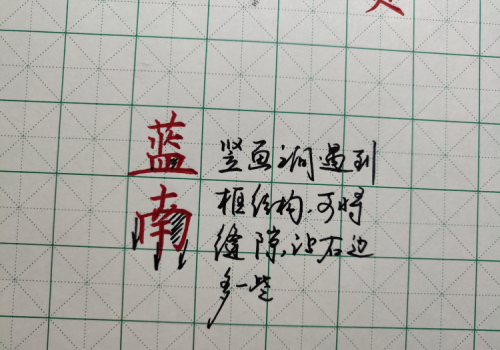 蓝
南
竖画之间遇到
框结构,可将
缝隙,右边
多一些